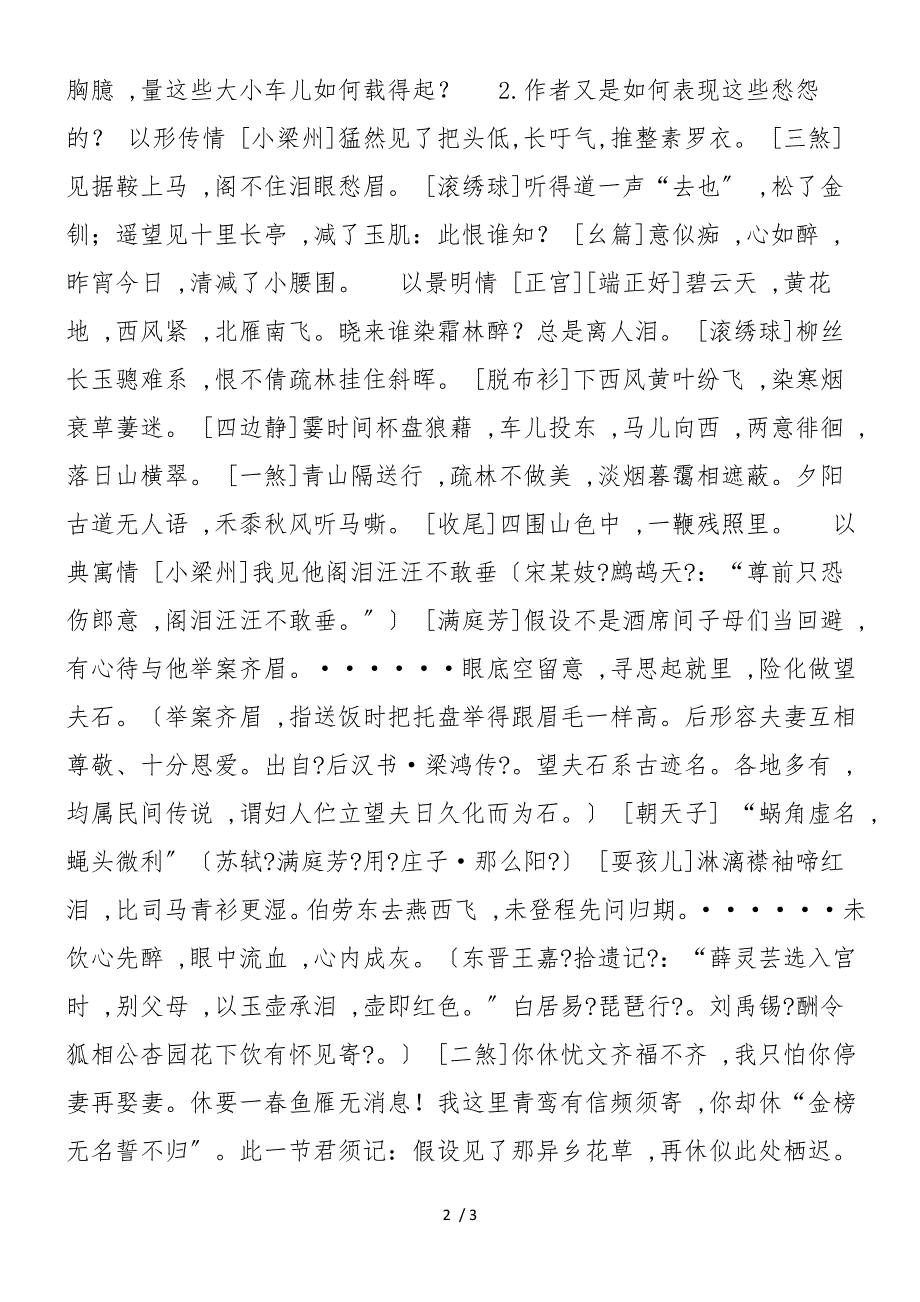 胸臆 ,量这些大小车儿如何载得起？　2.作者又是如何表现这些愁怨
的？ 以形传情 [小梁州]猛然见了把头低,长吁气,推整素罗衣。 [三煞]
见据鞍上马 ,阁不住泪眼愁眉。 [滚绣球]听得道一声“去也〞 ,松了金
钏；遥望见十里长亭 ,减了玉肌：此恨谁知？ [幺篇]意似痴 ,心如醉 ,
昨宵今日 ,清减了小腰围。　 以景明情 [正宫][端正好]碧云天 ,黄花
地 ,西风紧 ,北雁南飞。晓来谁染霜林醉？总是离人泪。 [滚绣球]柳丝
长玉骢难系 ,恨不倩疏林挂住斜晖。 [脱布衫]下西风黄叶纷飞 ,染寒烟
衰草萋迷。 [四边静]霎时间杯盘狼藉 ,车儿投东 ,马儿向西 ,两意徘徊 ,
落日山横翠。 [一煞]青山隔送行 ,疏林不做美 ,淡烟暮霭相遮蔽。夕阳
古道无人语 ,禾黍秋风听马嘶。 [收尾]四围山色中 ,一鞭残照里。　 以
典寓情 [小梁州]我见他阁泪汪汪不敢垂〔宋某妓?鹧鸪天?：“尊前只恐
伤郎意 ,阁泪汪汪不敢垂。〞〕 [满庭芳]假设不是酒席间子母们当回避 ,
有心待与他举案齐眉。······眼底空留意 ,寻思起就里 ,险化做望
夫石。〔举案齐眉 ,指送饭时把托盘举得跟眉毛一样高。后形容夫妻互相
尊敬、十分恩爱。出自?后汉书·梁鸿传?。望夫石系古迹名。各地多有 ,
均属民间传说 ,谓妇人伫立望夫日久化而为石。〕 [朝天子] “蜗角虚名 ,
蝇头微利〞〔苏轼?满庭芳?用?庄子·那么阳?〕 [耍孩儿]淋漓襟袖啼红
泪 ,比司马青衫更湿。伯劳东去燕西飞 ,未登程先问归期。······未
饮心先醉 ,眼中流血 ,心内成灰。〔东晋王嘉?拾遗记?：“薛灵芸选入宫
时 ,别父母 ,以玉壶承泪 ,壶即红色。〞白居易?琵琶行?。刘禹锡?酬令
狐相公杏园花下饮有怀见寄?。〕 [二煞]你休忧文齐福不齐 ,我只怕你停
妻再娶妻。休要一春鱼雁无消息！我这里青鸾有信频须寄 ,你却休“金榜
无名誓不归〞。此一节君须记：假设见了那异乡花草 ,再休似此处栖迟。
2 / 3